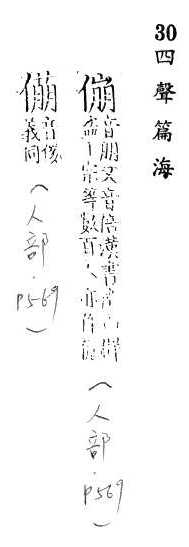 30四聲篇海
傰音朋又音倍漢書南山群
盗宗等數百人亦作
(人部.P569)
音
義同
(人部.P569)